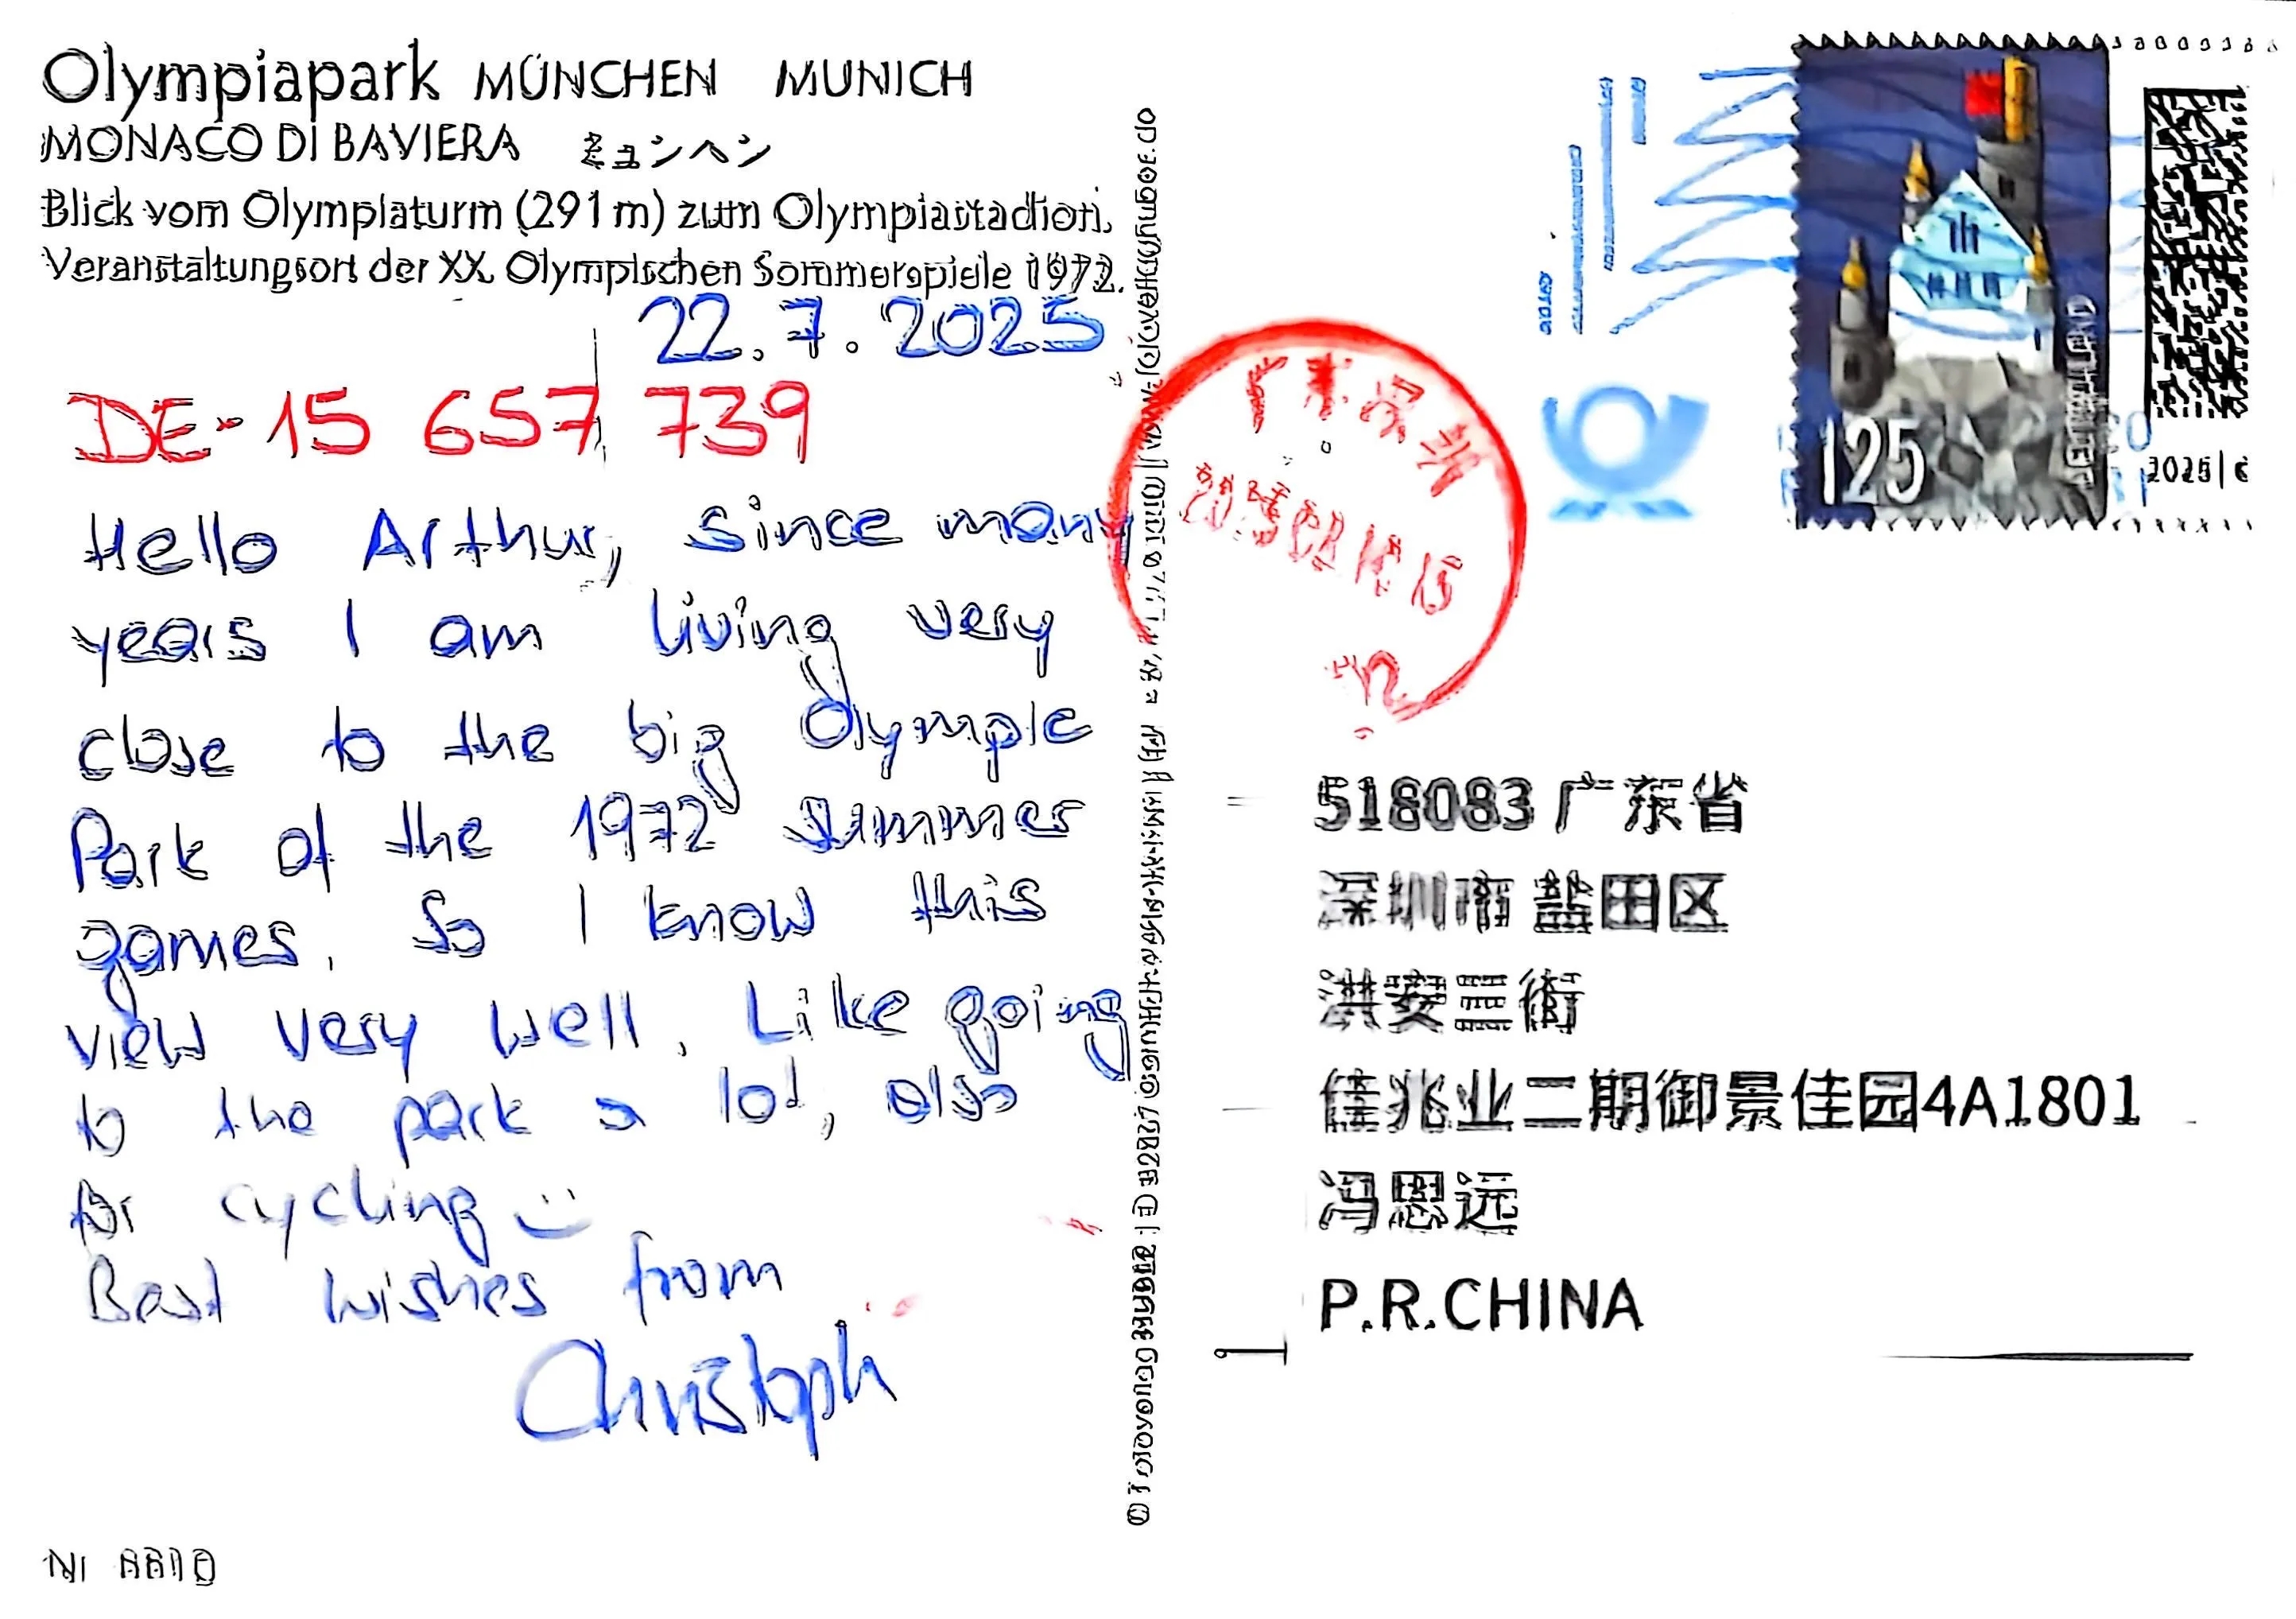 Olympiapark MÜNCHEN MUNICH
MONACO DI BAVIERA ミュンヘン
Blick vom Olympiaturm (291 m) zum Olympiastadion,
Veranstaltungsort der XX. Olympischen Sommerspiele 1972.
22.7.2025
DE-15 657 739
Hello Arthur, since many
years I am living very
close to the big Olympic
Park of the 1972 summer
games. So I know this
view very well. Like going
to the park a lot, also
for cycling
Best wishes from
Christoph
125
518083 广东省
深圳市盐田区
洪安三街
佳兆业二期御景佳园4A1801
冯思远
P.R.CHINA